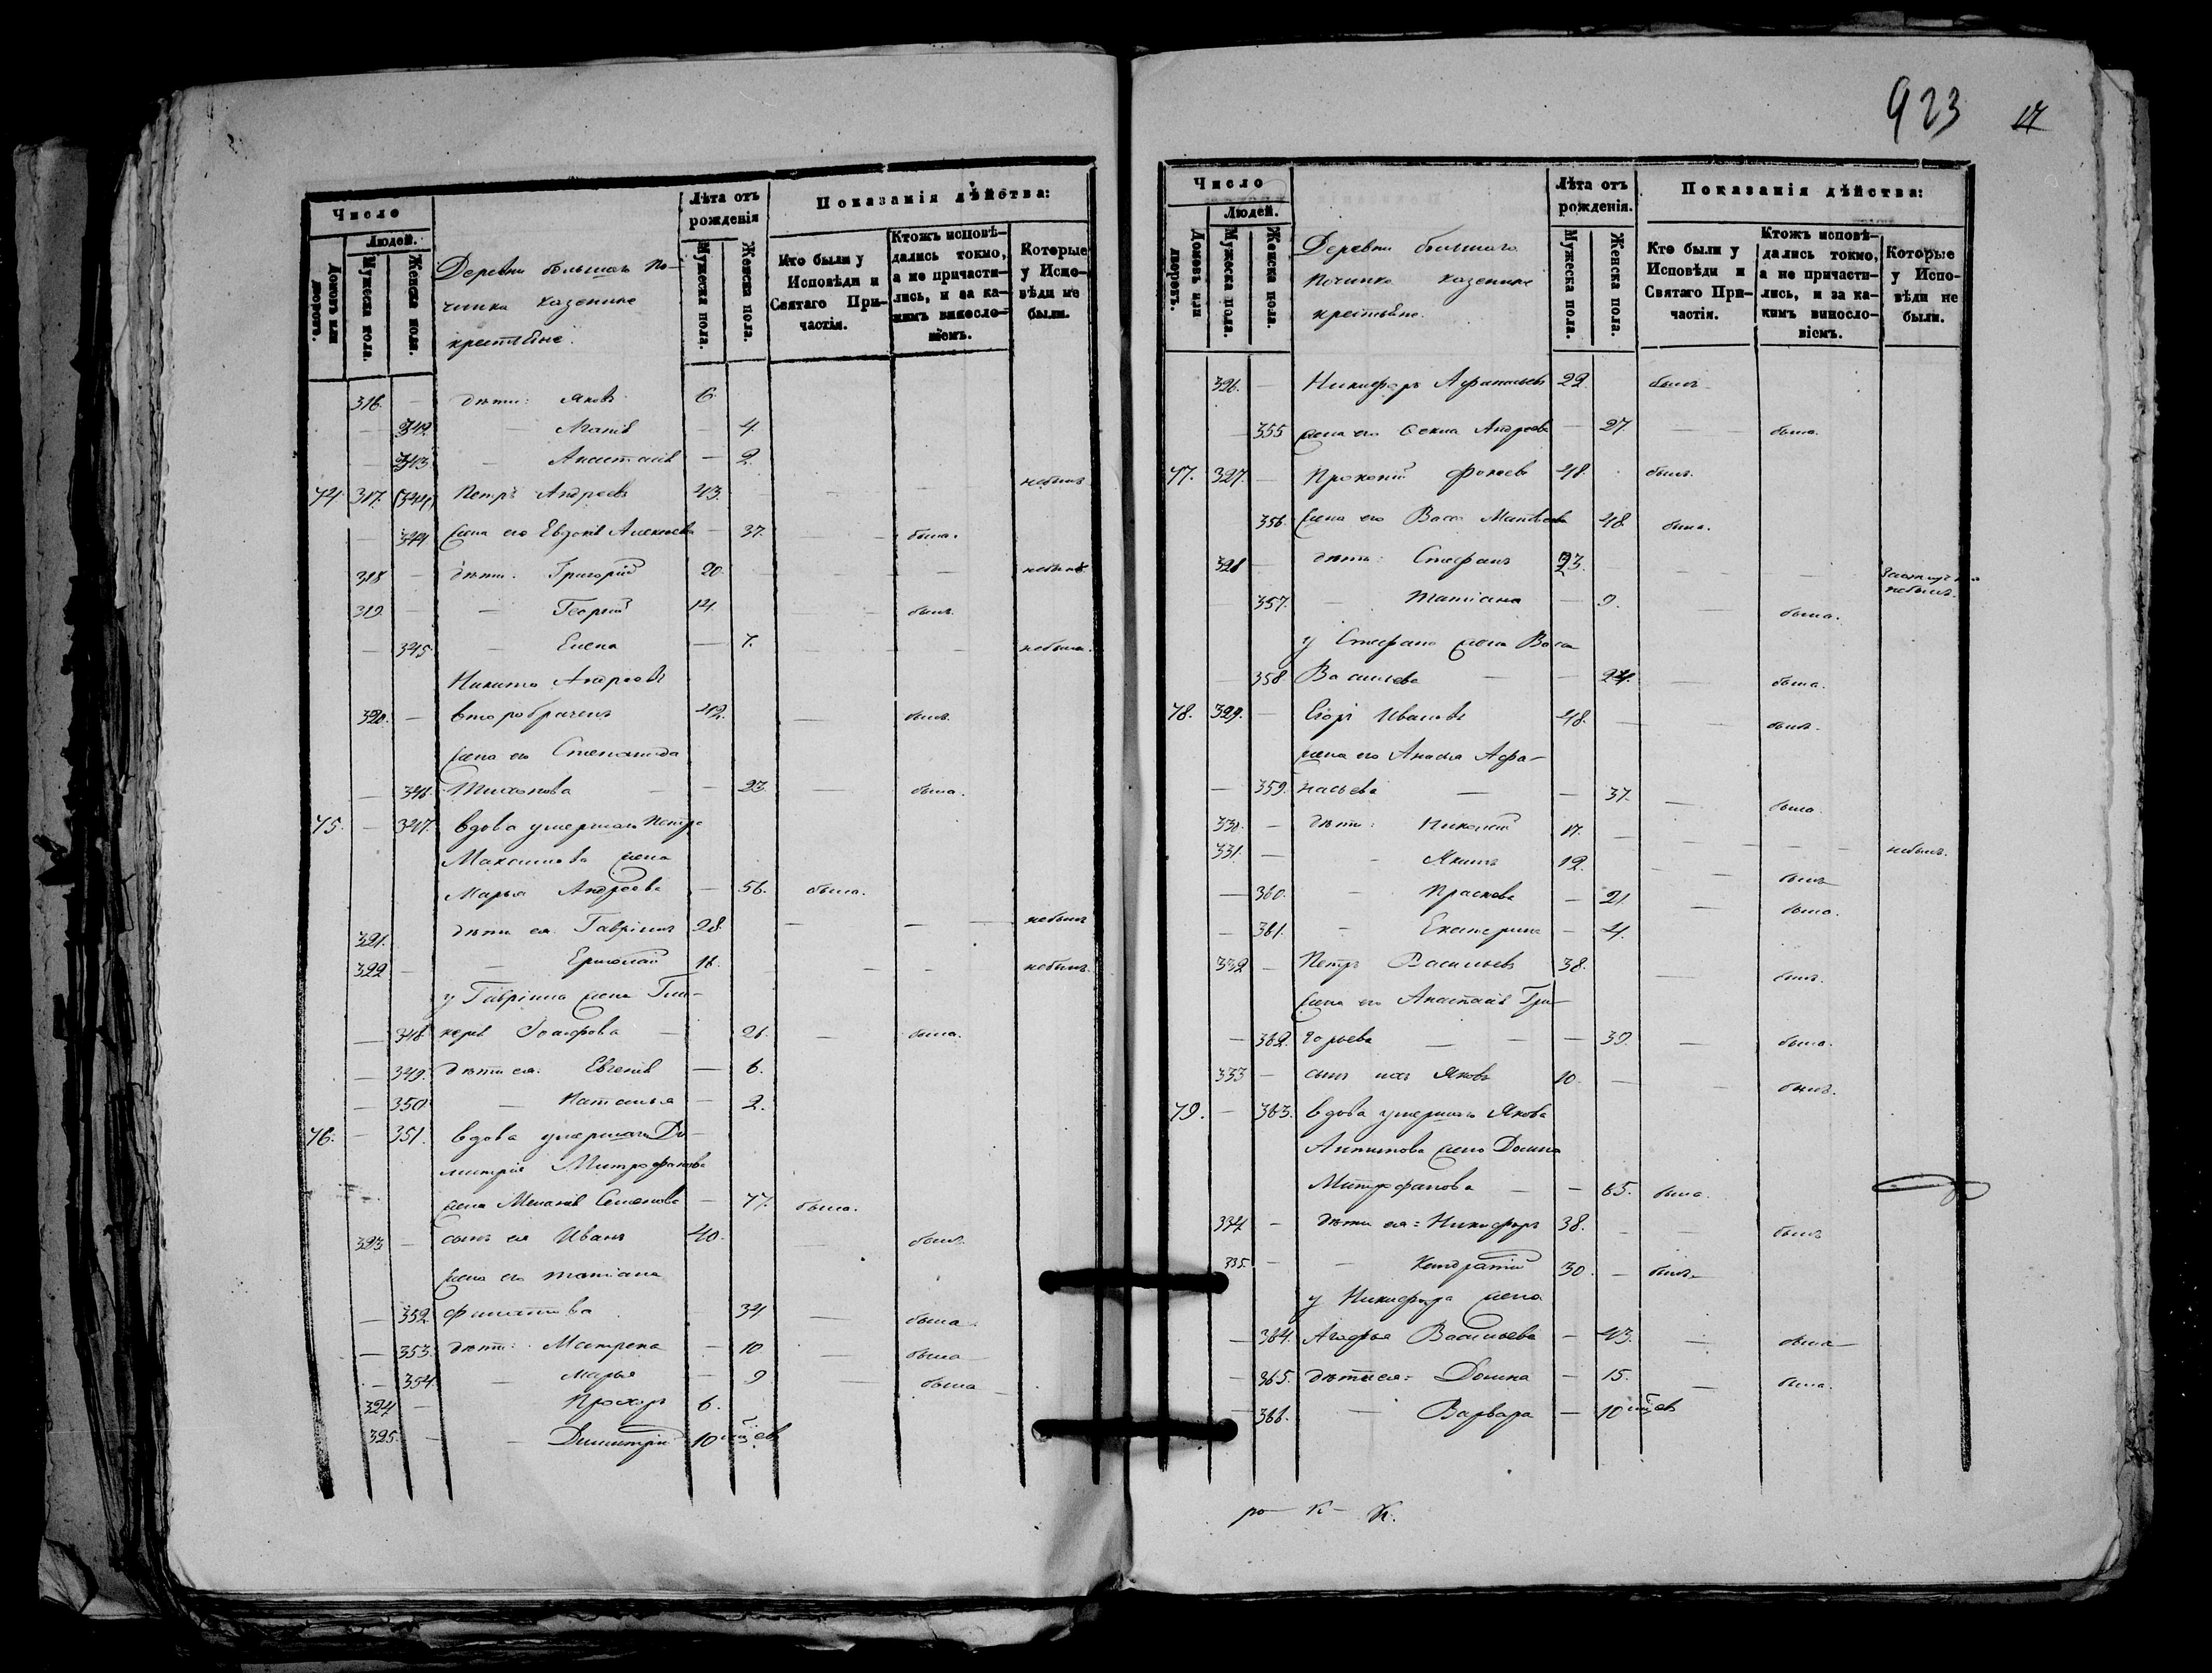 923 17
Число
Людей.
Домовъ или дворовъ.
Мужеска пола.
Женска пола.
Деревни большаго по-
чинка казенные
крестьяне.
Лѣта отъ
рожденія
Мужеска пола.
Женска пола.
Показанія дѣйства:
Кто были у
Исповѣди и
Святаго При-
частія.
Ктожъ исповѣ-
дались токмо,
а не причасти-
лись, и за ка-
кимъ виносло-
віемъ.
Которые
у Испо-
вѣди не
были.
316. — дѣти: Яковъ 6.
— 342. — Агапія — 4.
— 343. — Анастасія — 2.
74. 317. Петръ Андреевъ 43. небылъ
— 344. жена его Евдокія Алексѣева — 37. была.
318 — дѣти: Григорій 20. небылъ
319 — — Георгій 14. былъ.
— 345. — Елена — 7. небыла.
Никита Андреевъ
320. — второбраченъ 42. былъ.
жена его Степанида
— 346. Тихонова — — 23 была.
75. — 347. вдова умершаго Петра
Максимова жена
Марья Андреева — 56. была.
321. дѣти ея: Гавріилъ 28. небылъ
322 — — Ермолай 16. небылъ.
у Гавріила жена Гли-
— 348. керія — 26. была.
— 349. дѣти ея: Евгенія — 6.
— 350 — Наталья — 2.
76. — 351. вдова умершаго Ди-
митрія Митрофанова
жена Меланія Семенова — 77. была.
323 — сынъ ея Иванъ 40. былъ
жена его Татіана
— 352. Филатова 34 была.
— 353. дѣти: Матрена — 10 была
— 354. — Марья — 9 была
324 — Прохоръ 6.
325. — — Димитрій 10 мѣсяцевъ
Число
Людей.
Домовъ или дворовъ.
Мужеска пола.
Женска пола.
Деревни большаго
починка казенные
крестьяне.
Лѣта отъ
рожденія.
Мужеска пола.
Женска пола.
Показанія дѣйства:
Кто были у
Исповѣди и
Святаго При-
частія.
Ктожъ исповѣ-
дались токмо,
а не причасти-
лись, и за ка-
кимъ виносло-
віемъ.
Которые
у Испо-
вѣди не
были.
326. — Никифоръ Афанасьевъ 22. былъ
— 355 жена его Андреева — 27 была.
77. 327. — Прокопій Фокаевъ 48. былъ.
356. жена его Васса Матвѣева 48 была.
328 — дѣти: Стефанъ 23. небылъ.
— 357. — Татіана — 9. была.
у Стефана жена Васса
— 358. Васильева — — 24. была.
78. 329. — Егоръ Ивановъ 48. былъ.
жена его Афа-
— 359. насьева — — 37. была.
330. — дѣти: Николай 17. небылъ.
331. — — Якимъ 12. былъ
— 360. — Прасковья — 21. была.
— 361. — Екатерина — 4.
332 — Петръ Васильевъ 38. былъ.
жена его Анастасія Гри-
— 362. горьева — — 39. была.
333 — сынъ ихъ Яковъ 10. былъ.
79. — 363. вдова умершаго Якова
Антипова жена Домна
Митрофанова — — 65. была.
334 — дѣти ея: Никифоръ 38. былъ
335. — — Кондратій 30. былъ
у Никифора жена
— 364. Агафья Васильева — 43. была
— 365. дѣти ея: Домна — 15. была.
— 366. — Варвара — 10 мѣсяцевъ